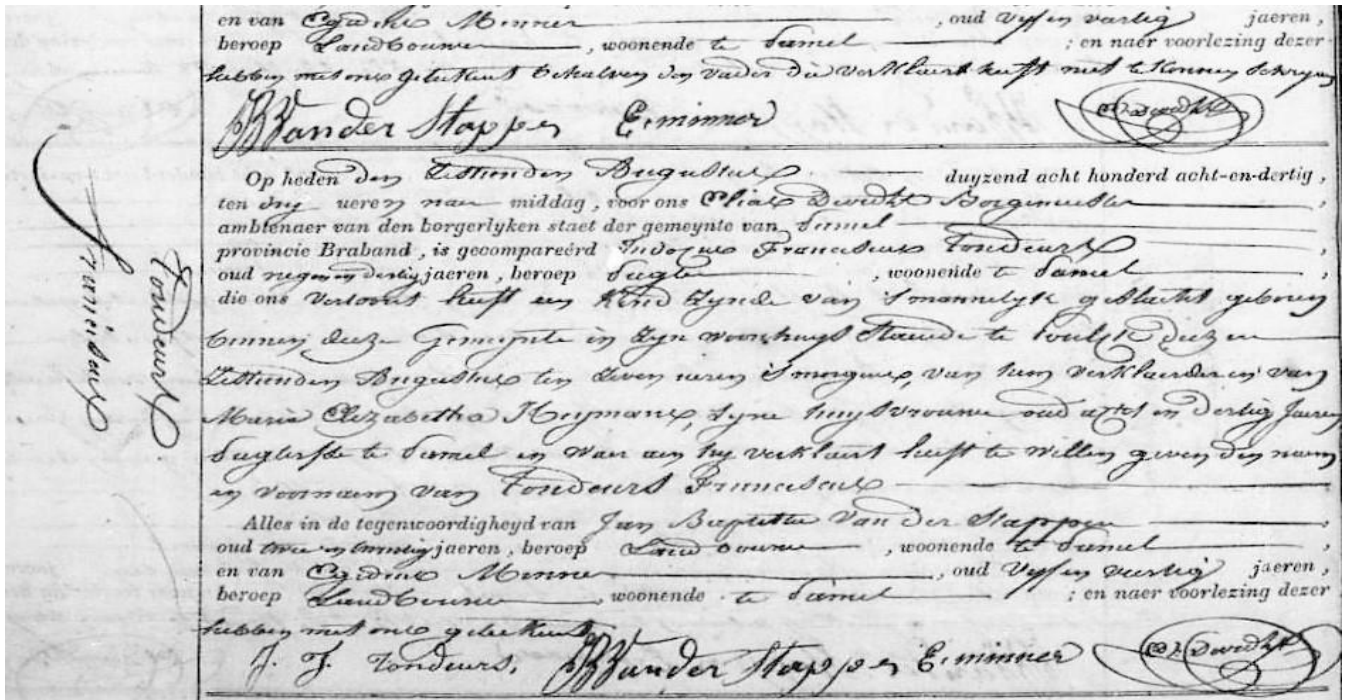 en van Egidius Minner, oud vyf en vertig jaeren,
beroep Landbouwer, woonende te Samel; en naer voorlezing dezer
hebben met ons geteekent behalven den vader die verklaert heeft niet te konnen schryven
JB Vander Stappen E. minner
Op heden den Zesthienden Augustus duyzend acht honderd acht-en-dertig,
ten dry ueren naer middag, voor ons Elias Borgemeester
ambtenaer van den borgerlyken staet der gemeynte van Samel
provincie Braband, is gecompareêrd Judocus Franciscus Tondeurs
oud negen en dertig jaeren, beroep, woonende te Samel,
die ons vertoont heeft een Kind zynde van 's mannelyk geslacht geboren
binnen deze Gemeynte in zyn woonhuys staende te dezen
Zesthienden Augustus ten zeven ueren 's morgens, van hem verklaerder en van
Maria Elizabetha Heymans, zyne huysvrouwe oud acht en dertig Jaeren
te Samel en waer aen hy verklaert heeft te willen geven den naem
en voornaem van Tondeurs Franciscus
Alles in de tegenwoordigheyd van Jan Baptista Van der Stappen
oud twee en twintig jaeren, beroep Landbouwer, woonende te Samel,
en van Egidius Minner, oud vyf en veertig jaeren,
beroep Landbouwer woonende te Samel; en naer voorlezing dezer
hebben met ons geteekent
J. F. Tondeurs, JB Vander Stappen E. minner
Tondeurs
Franciscus